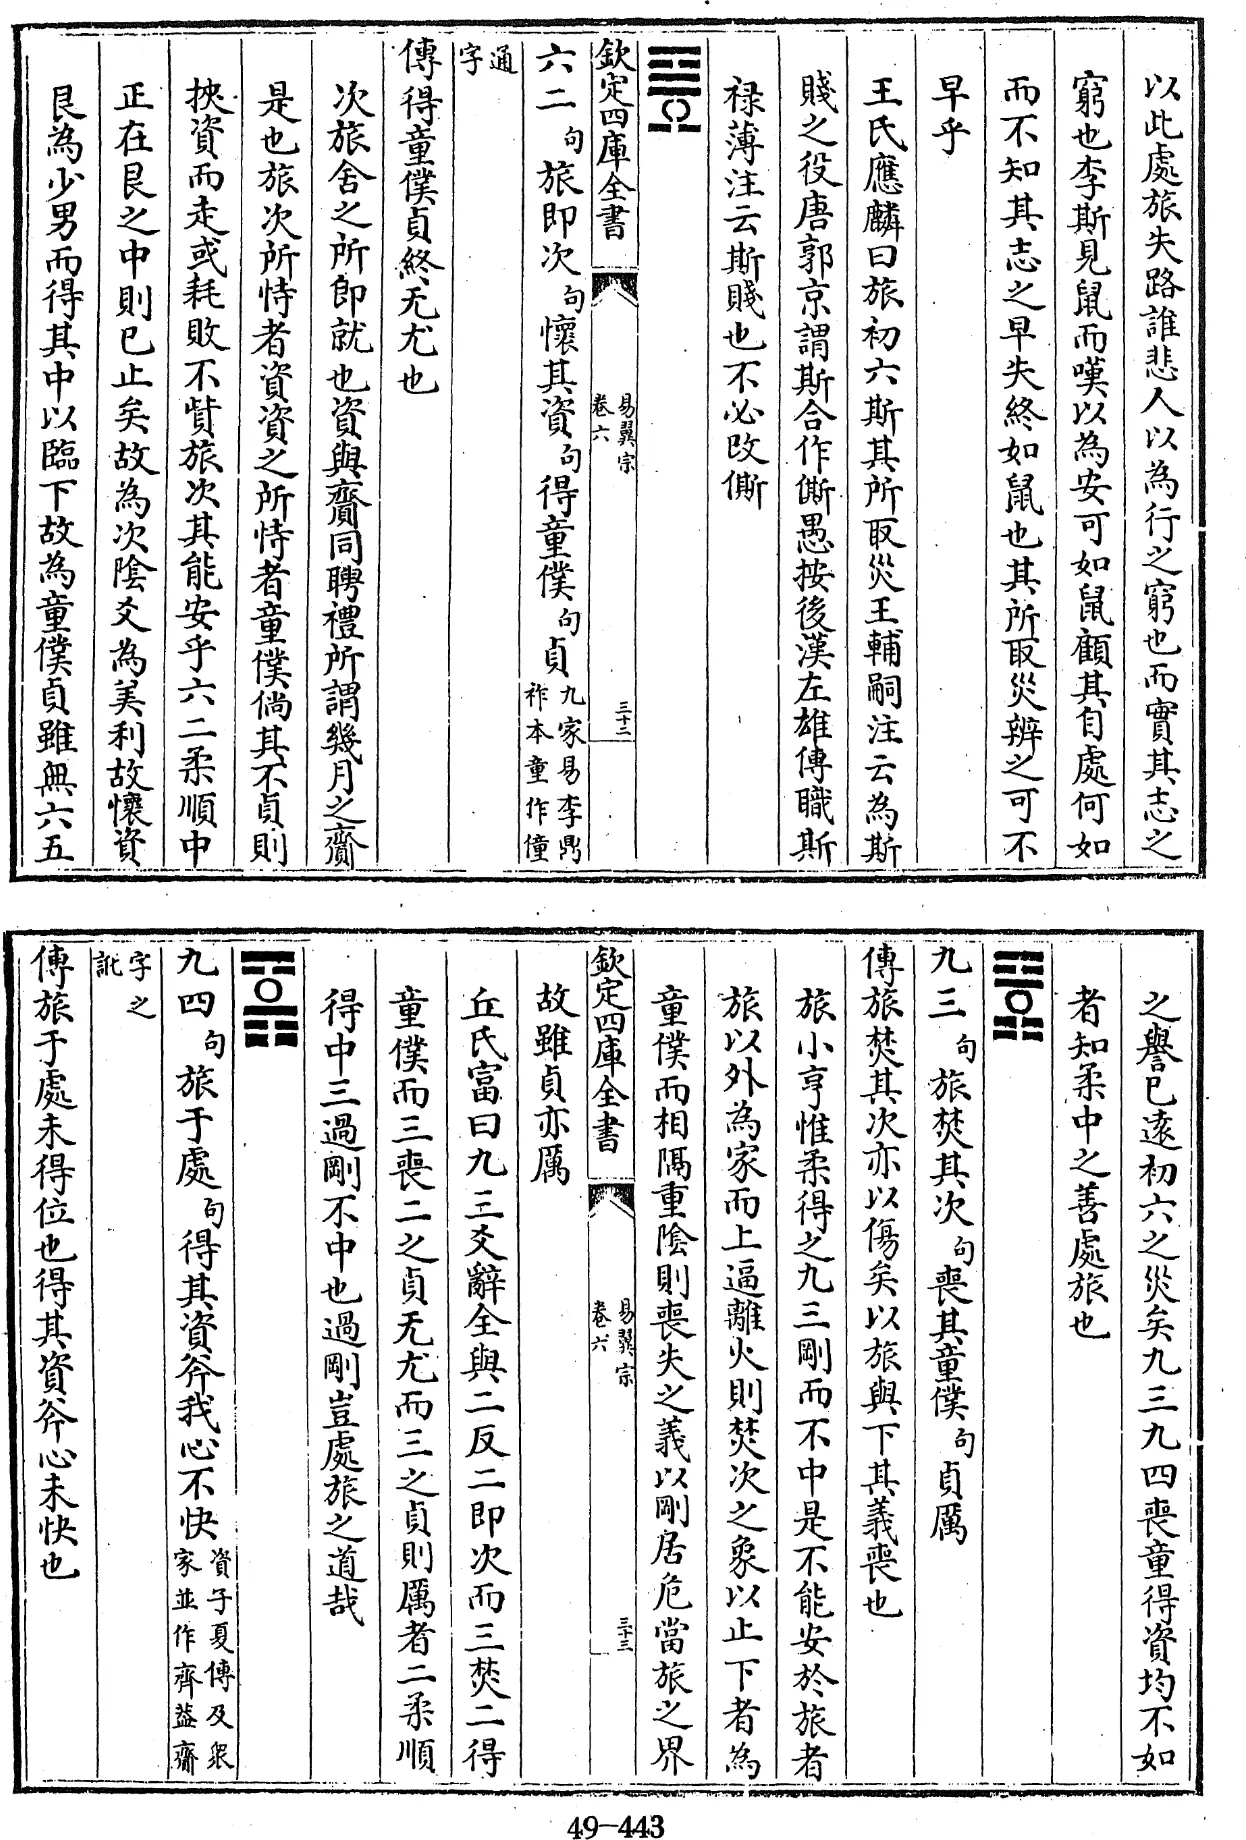 以此處旅失路誰悲人以為行之窮也而實其志之
窮也李斯見鼠而嘆以為安可如鼠顧其自處何如
而不知其志之早失終如鼠也其所取災辨之可不
早乎
王氏應麟曰旅初六斯其所取災王輔嗣注云為斯
賤之役唐郭京謂斯合作㒋愚按後漢左雄傳職斯
祿薄注云斯賤也不必改㒋
欽定四庫全書
易翼宗
卷六
三十二
六二句旅即次句懷其資句得童僕句貞九家易李鼎
祚本童作僮
通
字
傳得童僕貞終无尤也
次旅舍之所即就也資與齎同聘禮所謂幾月之齎
是也旅次所恃者資資之所恃者童僕倘其不貞則
挾資而走或耗敗不貲旅次其能安乎六二柔順中
正在艮之中則已止矣故為次陰爻為美利故懷資
艮為少男而得其中以臨下故為童僕貞雖無六五
之譽已遠初六之災矣九三九四喪童得資均不如
者知柔中之善處旅也
九三句旅焚其次句喪其童僕句貞厲
傳旅焚其次亦以傷矣以旅與下其義喪也
旅小亨惟柔得之九三剛而不中是不能安於旅者
旅以外為家而上逼離火則焚次之象以止下者為
童僕而相隔重陰則喪失之義以剛居危當旅之界
欽定四庫全書
易翼宗
卷六
三十三
故雖貞亦厲
丘氏富曰九三爻辭全與二反二即次而三焚二得
童僕而三喪二之貞无尤而三之貞則厲者二柔順
得中三過剛不中也過剛豈處旅之道哉
九四句旅于處句得其資斧我心不快資子夏傳及眾
家並作齊葢齋
字之
訛
傳旅于處未得位也得其資斧心未快也
49-443